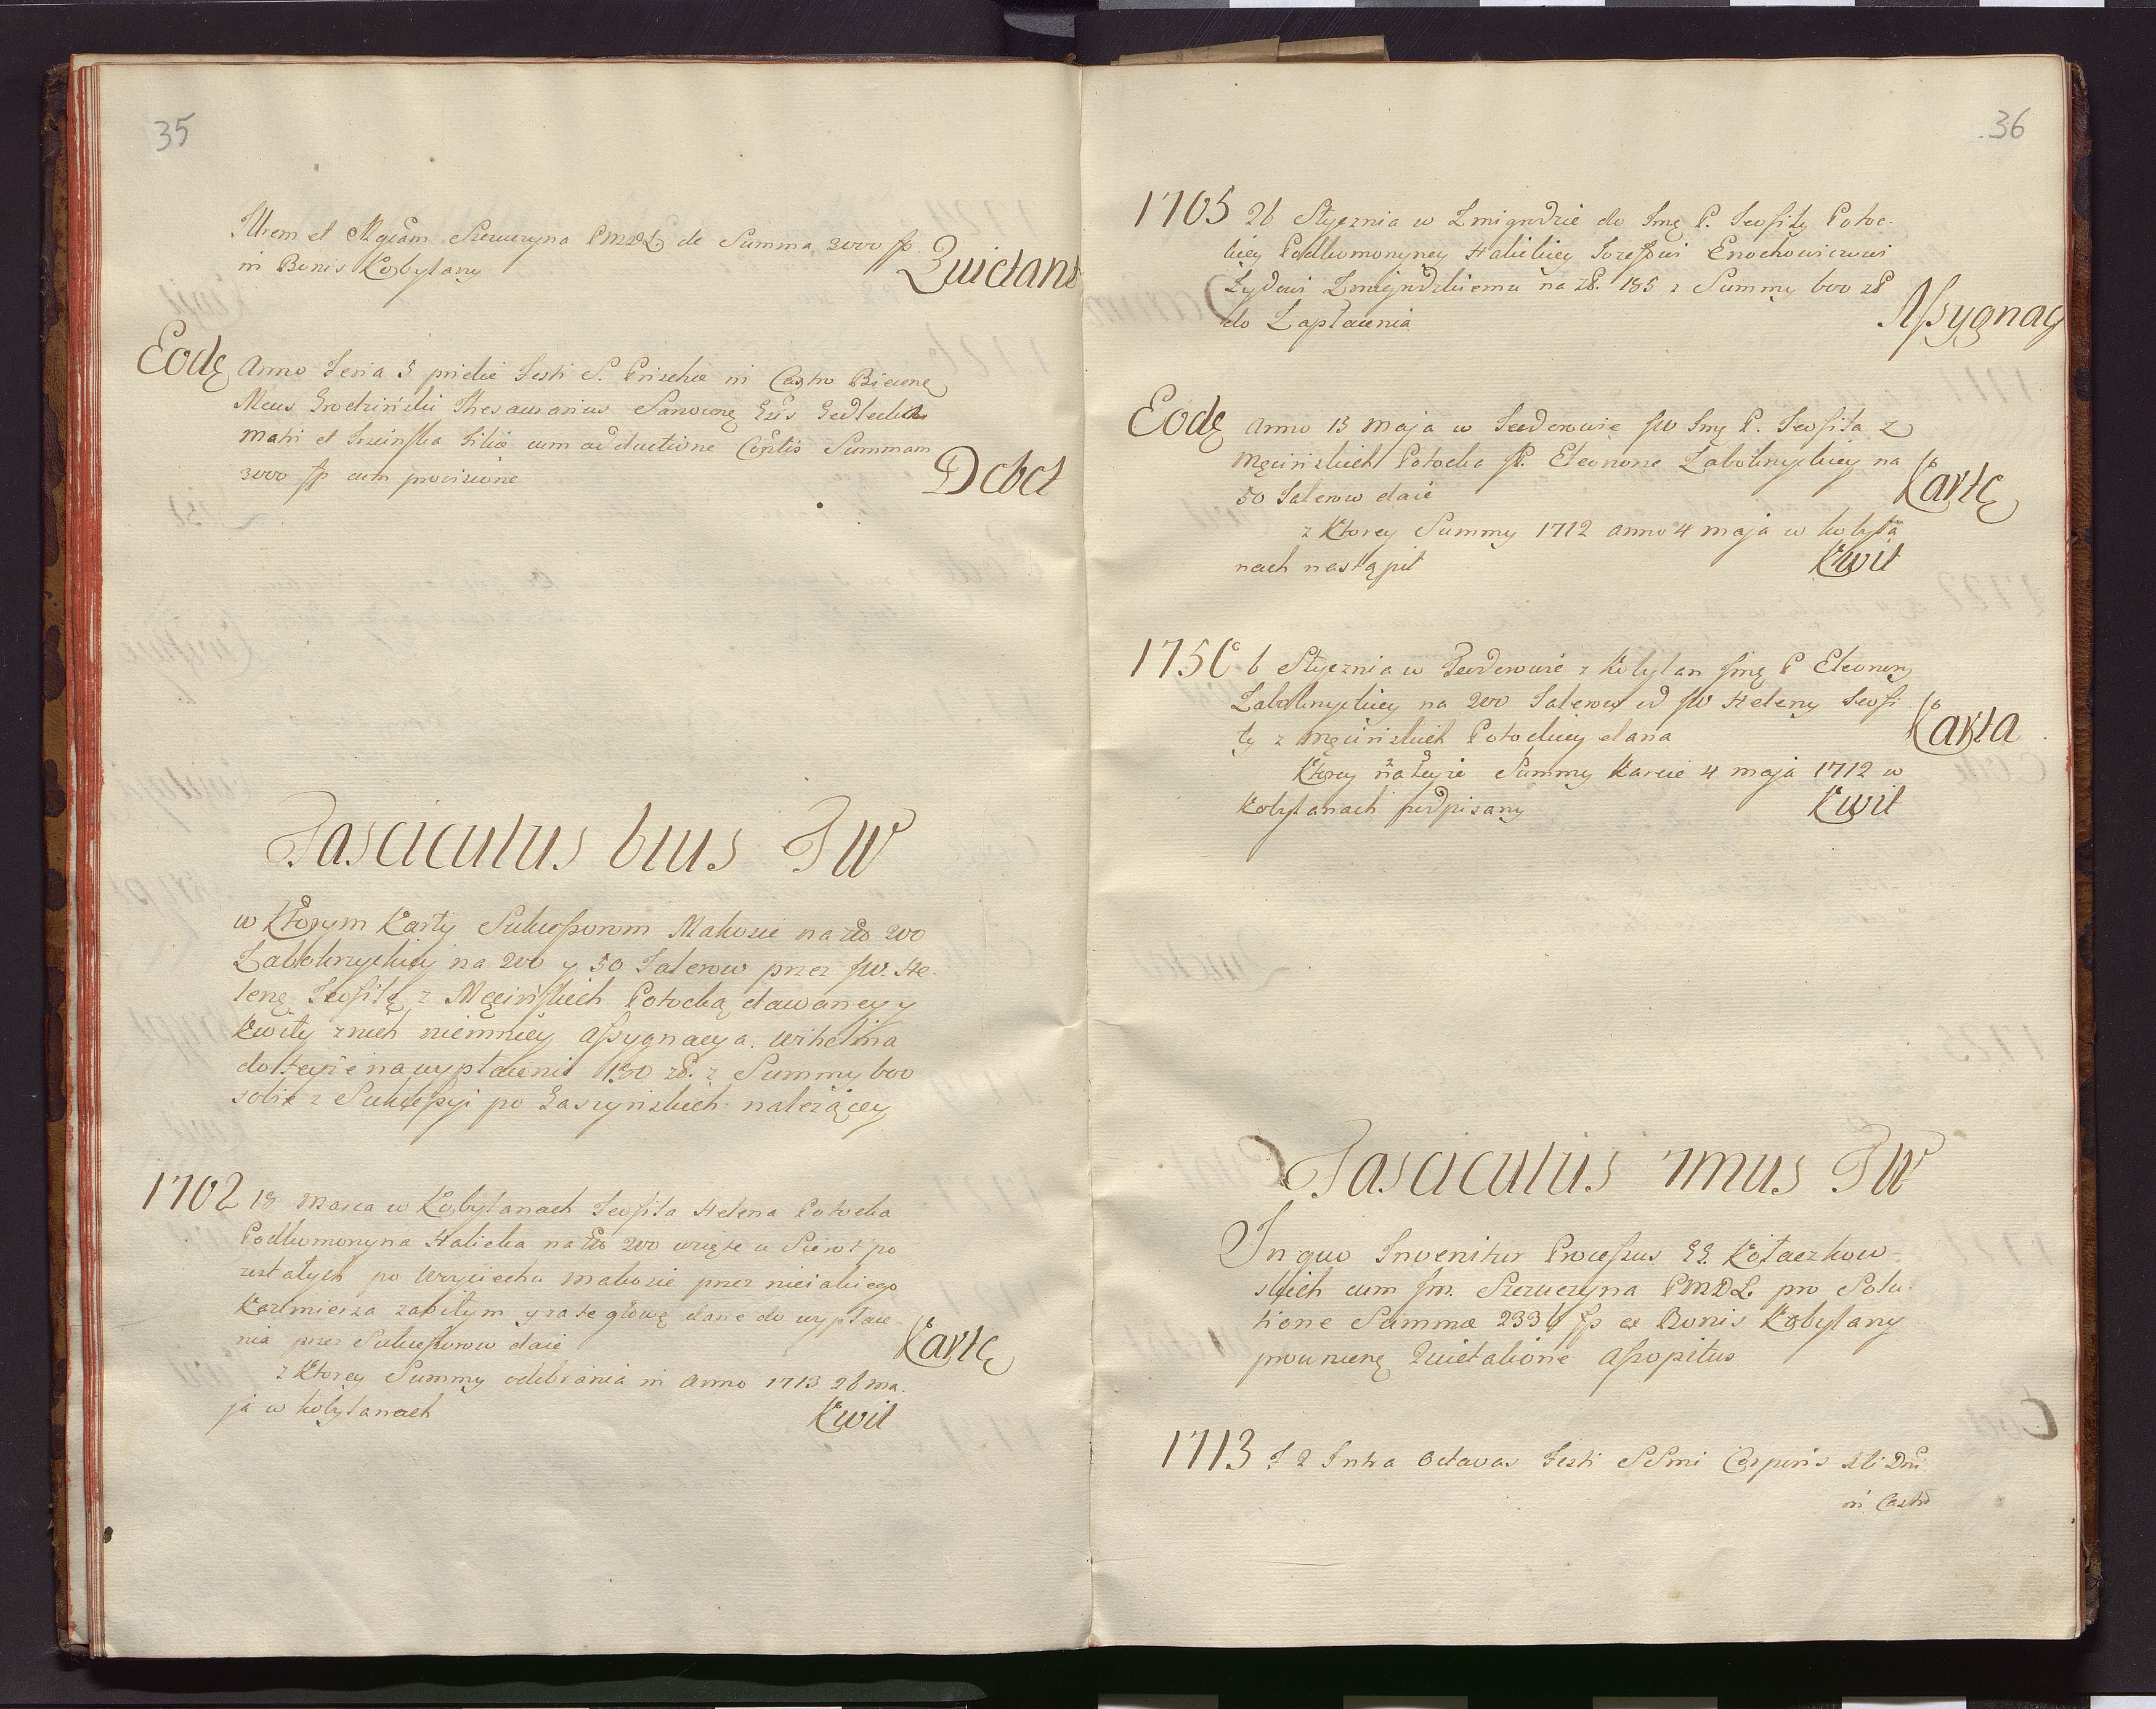 35
Illrem et Mgcam Szeweryna PMDL de Summa 3000 fp
in Bonis Kobylany Quietans
Eodę Anno Feria 5 pridie Festi S. Priscæ in Castro Biecenę
Meus Grodzinski Thesaurarius Sanocenę
Matri et Filiæ cum adductione Cõplis Summam
3000 fp cum provisione Debet
Fasciculus 6tus TW
w Ktorym Karty Sukcessorom Makosie na zło 200
Zabokrzyckiey na 200 y 50 Talerow przez JW. He-
lenę Teofilę z Męcinskich Potocką dawaney y
Kwity znich niemniey Assygnacya Wilhelma
do teyże na wypłacenie 180 zł. z Summy 600
sobie z Sukcessyi po Łaszynskich należącey
1702 18 Marca w Kobylanach Teofila Helena Potocka
Podkomorzyna Halicka na zło 200 wzięte u Sierot po
zostałych po Woyciechu Makosie przez nieiakiego
Kazimierza zabitym y za te głowę dane do wypłace-
nia przez Sukcessorow daie Kartę
z Ktorey Summy odebrania in Anno 1713 26 Ma-
ja w Kobylanach Kwit
36
1705 26 Stycznia w Zmigrodzie do Jmę P. Teofily Potoc-
kiey Podkomorzyney Halickiey Jozefowi Enochowiczowi
Żydowi Zmigrodzkiemu na zł. 185 z Summy 600 zł
do Zapłacenia Assygnacy
Eodę Anno 13 Maja w Fedorowie JW Jmę P. Teofila z
Męcinskich Potocka JP. Eleonorze Zabokrzyckiey na
50 Talerow daie Kartę
z Ktorey Summy 1712 anno 4 maja w Kobyla
nach nastąpił Kwit
1750 6 Stycznia w Fedorowie z Kobylan Jmę P Eleonory
Zabokrzyckiey na 200 Talerow od JW Heleny Teofi
ly z Męcinskich Potockiey dana Karta
Ktorey na teyże Summy Karcie 4 maja 1712 w
Kobylanach podpisany Kwit
Fasciculus 7mus TW
In quo Invenitur Processus GG. Kołaczkow-
skich cum Jm. Szeweryna PMDL. pro Solu-
tione Summæ 2336 fp ex Bonis Kobylany
Quietatione Assopitus
1713 F 2 Intra Octavas Festi SSmi Corporis Xti Dni
in Castro